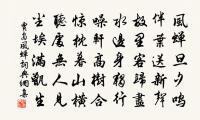 風蟬旦夕鳴
伴葉送新聲
故里客歸盡
水邊身獨行
噪軒高樹合
驚枕暮山橫
聽處無人見
塵埃滿甑生
賈島風蟬詞典